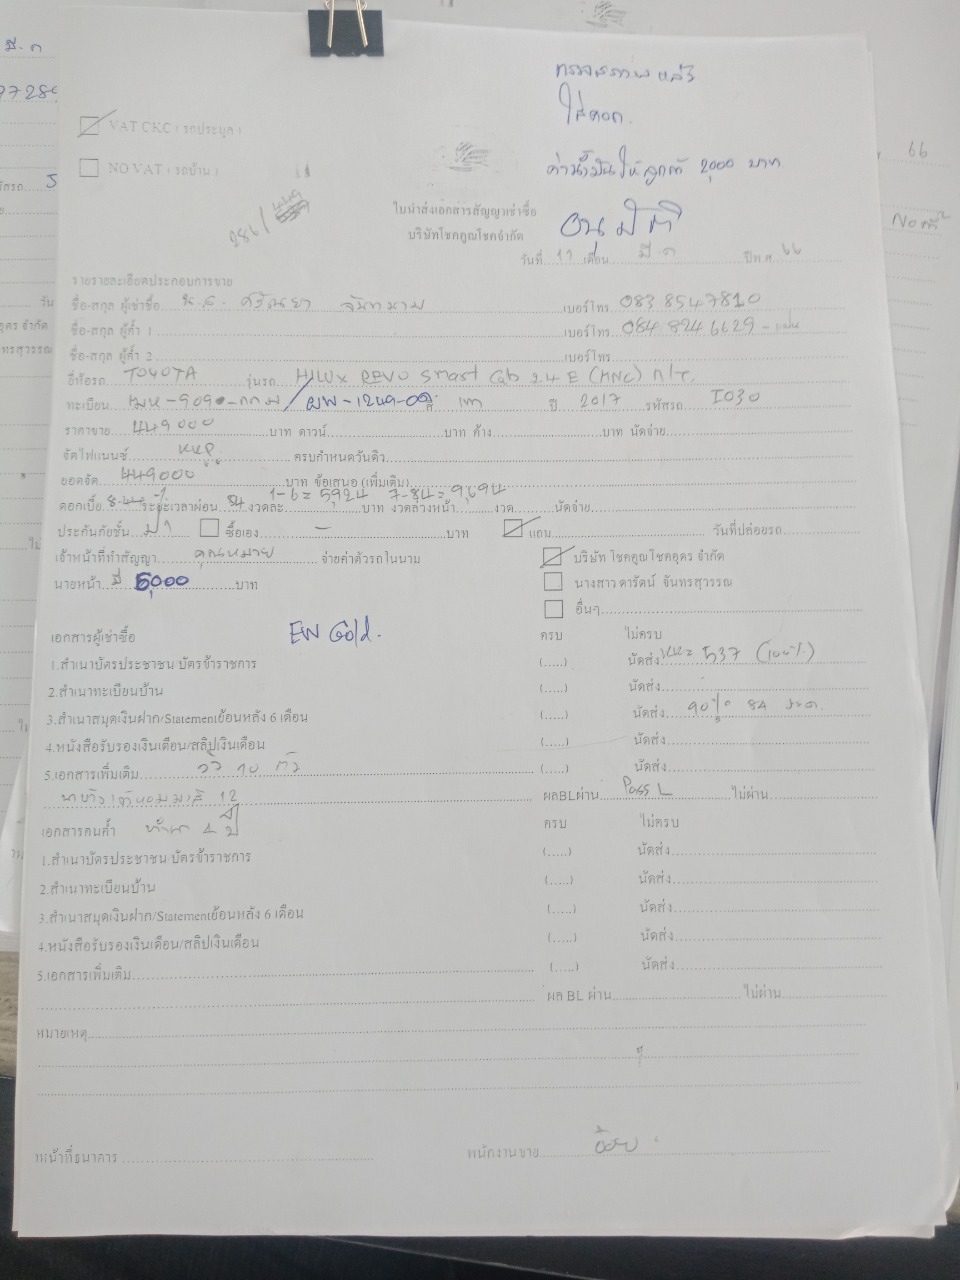 มี.ค
ตรวจสภาพแล้ว
VAT CKC ( รถประมูล )
NO VAT ( รถบ้าน )
ค่าน้ำมันให้ลูกค้า 2,000 บาท
ใบนำส่งเอกสารสัญญาเช่าซื้อ
บริษัทโชคคูณโชคจำกัด
อนุมัติ
66
286/449
วันที่ 17 เดือน มี.ค ปีพ.ศ. 66
รายรายละเอียดประกอบการขาย
ชื่อ-สกุล ผู้เช่าซื้อ น.ส. ศรัณยา จันทนาม เบอร์โทร. 083 8547810
ชื่อ-สกุล ผู้ค้ำ 1 เบอร์โทร. 064 8246629 - แฟน
ชื่อ-สกุล ผู้ค้ำ 2 เบอร์โทร.
ยี่ห้อรถ TOYOTA รุ่นรถ HILUX REVO Smart Cab 2.4 E (MNC)
ทะเบียน 9090-กทม / ผพ-1249-อด สี เทา ปี 2017 รหัสรถ I030
ราคาขาย 449000 บาท ดาวน์ บาท ค้าง บาท นัดจ่าย
จัดไฟแนนซ์ KKP ครบกำหนดวันคิว
ยอดจัด 449000 บาท ข้อเสนอ (เพิ่มเติม)
ดอกเบี้ย 8.44 ระยะเวลาผ่อน 84 งวดละ 1-6 = 5,924 7-84 = 9,694 บาท งวดล่วงหน้า งวด นัดจ่าย
ประกันภัยชั้น ป1 ซื้อเอง - บาท แถม วันที่ปล่อยรถ
เจ้าหน้าที่ทำสัญญา คุณหมาย จ่ายค่าตัวรถในนาม บริษัท โชคคูณโชคอุดร จำกัด
นายหน้า มี 5,000 บาท นางสาว ดารัตน์ จันทรสุวรรณ
อื่นๆ
เอกสารผู้เช่าซื้อ EW Gold. ครบ ไม่ครบ
1.สำเนาบัตรประชาชน บัตรข้าราชการ (.....) นัดส่ง 537 (100%)
2.สำเนาทะเบียนบ้าน (.....) นัดส่ง
3.สำเนาสมุดเงินฝาก/Statementย้อนหลัง 6 เดือน (.....) นัดส่ง 90% 84 งวด.
4.หนังสือรับรองเงินเดือน/สลิปเงินเดือน (.....) นัดส่ง
5.เอกสารเพิ่มเติม วัว 10 ตัว (.....) นัดส่ง
ผลBLผ่าน Pass L ไม่ผ่าน
เอกสารคนค้ำ ครบ ไม่ครบ
1.สำเนาบัตรประชาชน บัตรข้าราชการ (.....) นัดส่ง
2.สำเนาทะเบียนบ้าน (.....) นัดส่ง
3.สำเนาสมุดเงินฝาก/Statementย้อนหลัง 6 เดือน (.....) นัดส่ง
4.หนังสือรับรองเงินเดือน/สลิปเงินเดือน (.....) นัดส่ง
5.เอกสารเพิ่มเติม (.....) นัดส่ง
ผล BL ผ่าน ไม่ผ่าน
หมายเหตุ
หน้าที่ธนาคาร พนักงานขาย อ้อย